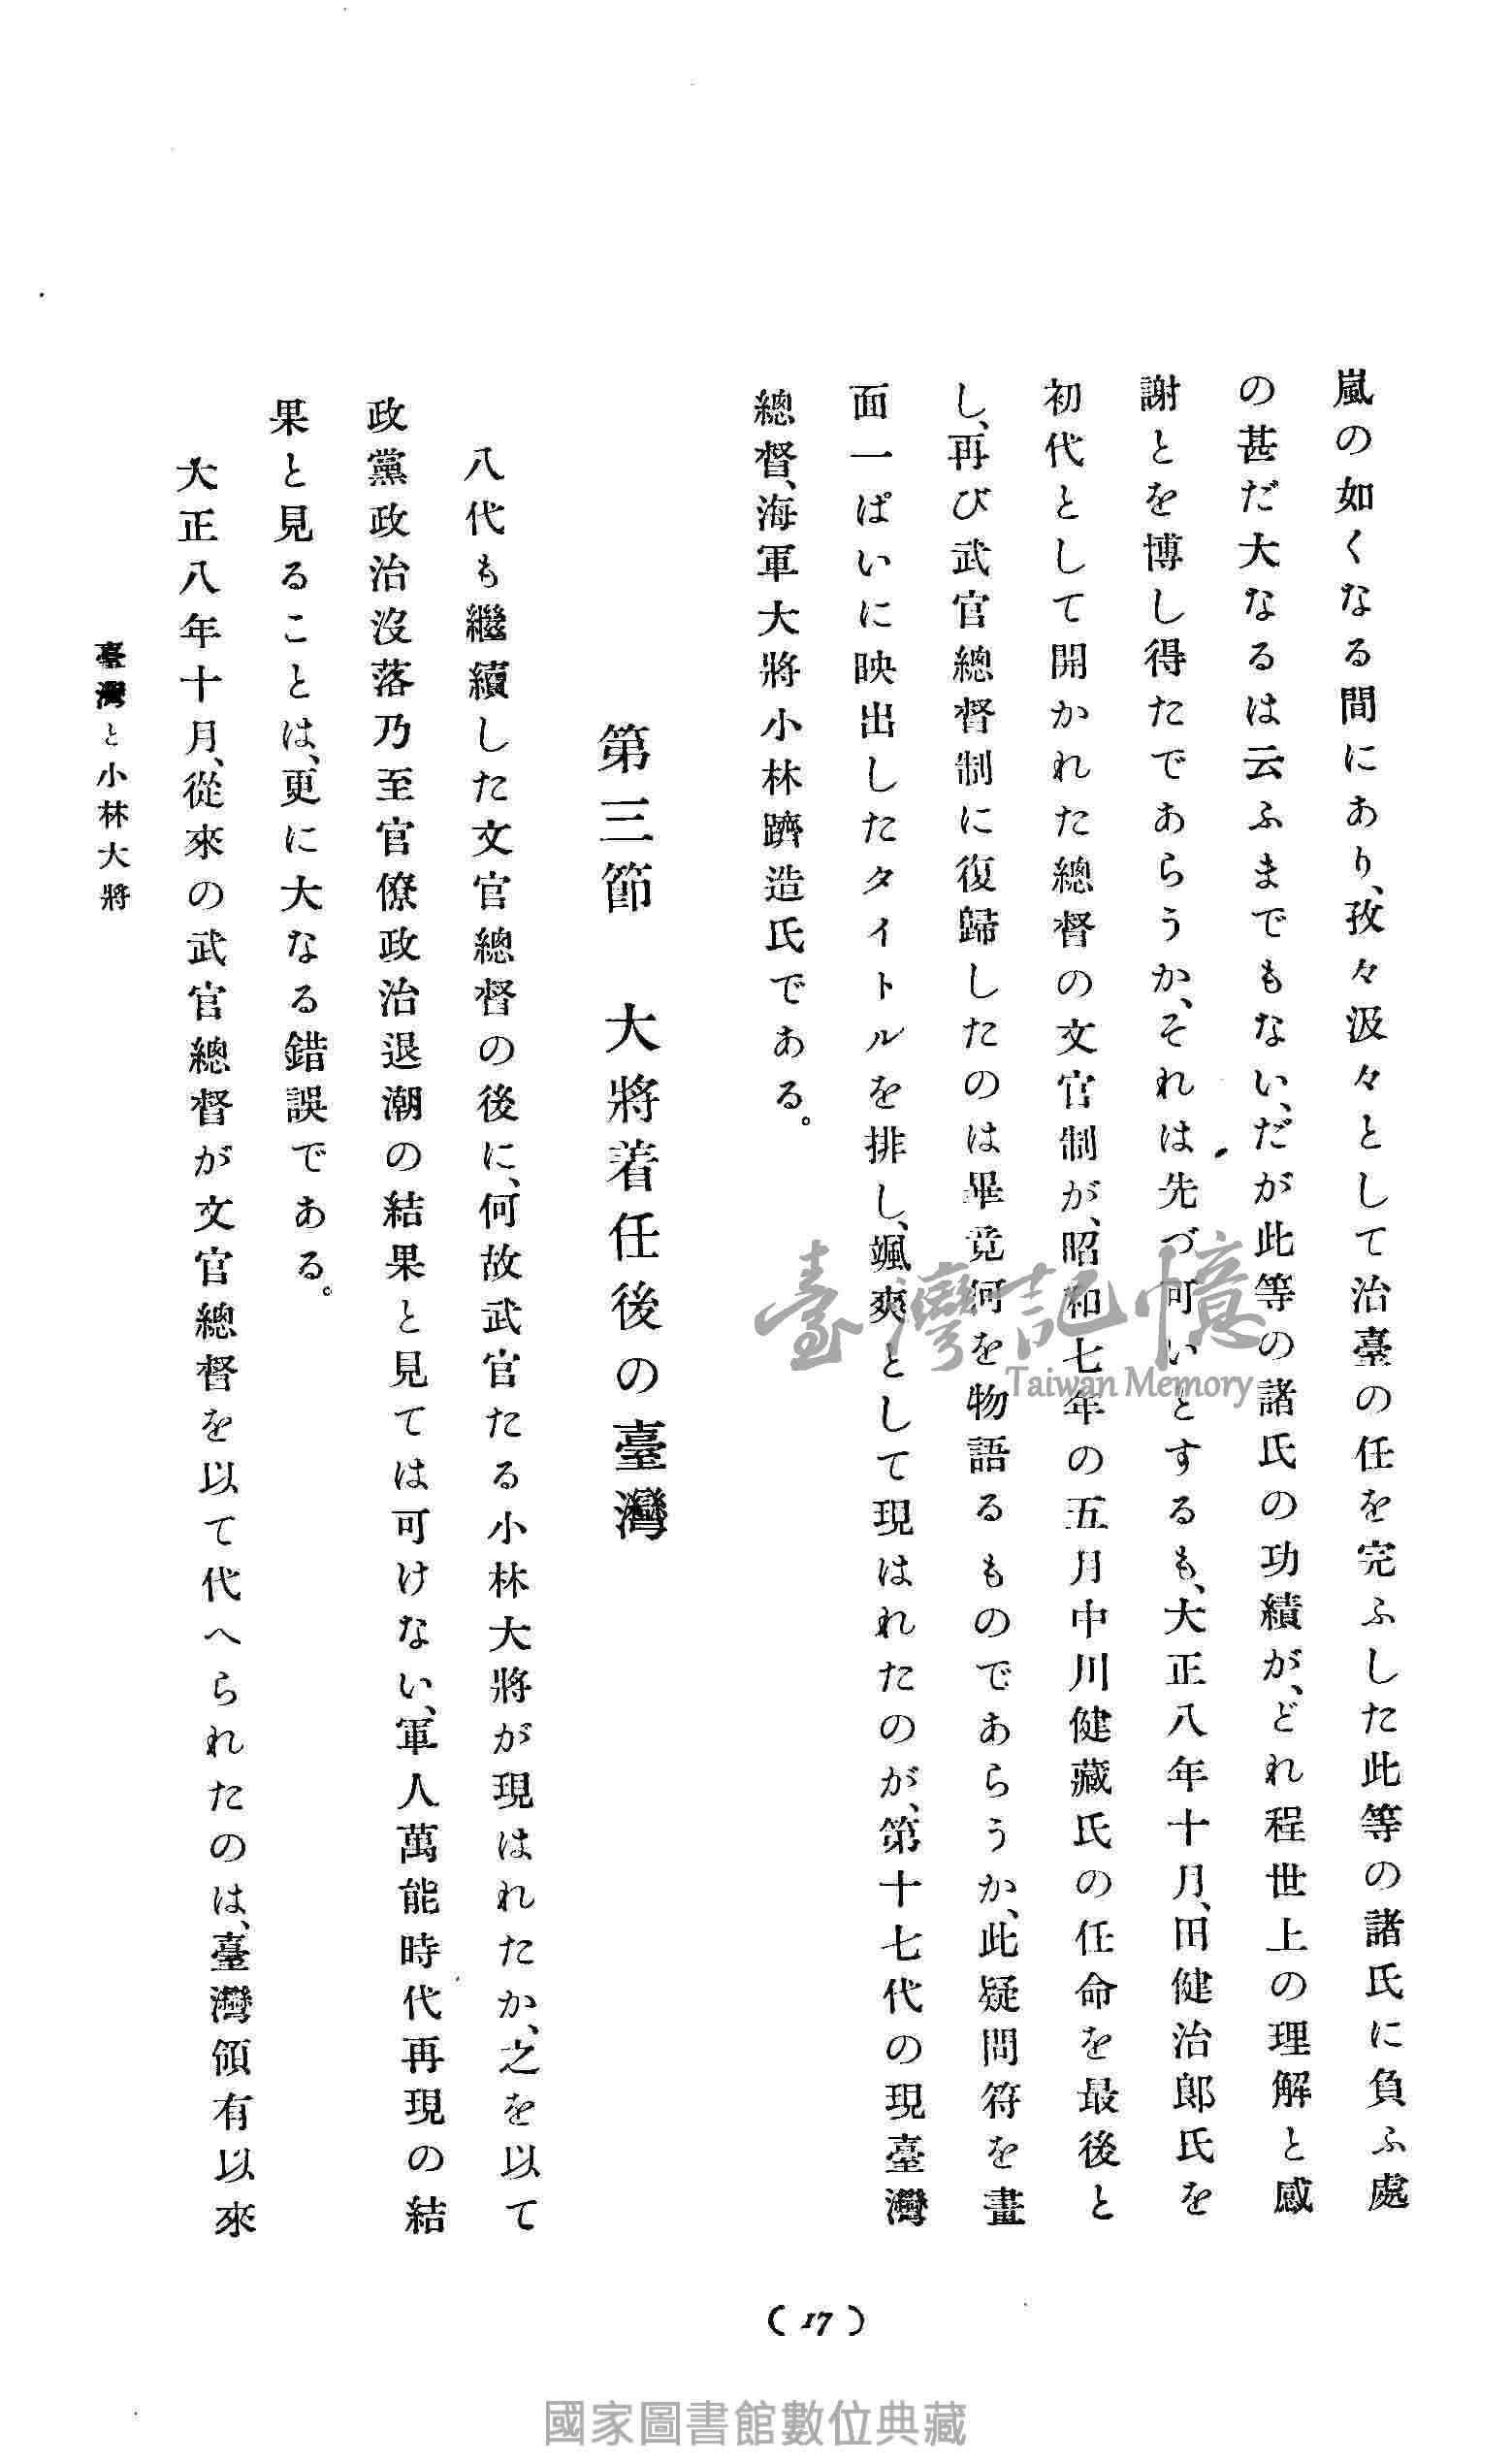 嵐の如くなる間にあり、孜々汲々として治臺の任を完ふした此等の諸氏に負ふ處
の甚だ大なるは云ふまでもない、だが此等の諸氏の功績が、どれ程世上の理解と感
謝とを博し得たであらうか、それは先づ可いとするも、大正八年十月、田健治郎氏を
初代として開かれた總督の文官制が、昭和七年の五月中川健藏氏の任命を最後と
し、再び武官總督制に復歸したのは畢竟何を物語るものであらうか、此疑問符を畫
面一ぱいに映出したタイトルを排し、颯爽として現はれたのが、第十七代の現臺灣
總督、海軍大將小林躋造氏である。
第三節　大將着任後の臺灣
八代も繼續した文官總督の後に、何故武官たる小林大將が現はれたか、之を以て
政黨政治沒落乃至官僚政治退潮の結果と見ては可けない、軍人萬能時代再現の結
果と見ることは、更に大なる錯誤である。
大正八年十月、從來の武官總督が文官總督を以て代へられたのは、臺灣領有以來
臺灣と小林大將
(17)
臺灣記憶
Taiwan Memory
國家圖書館數位典藏